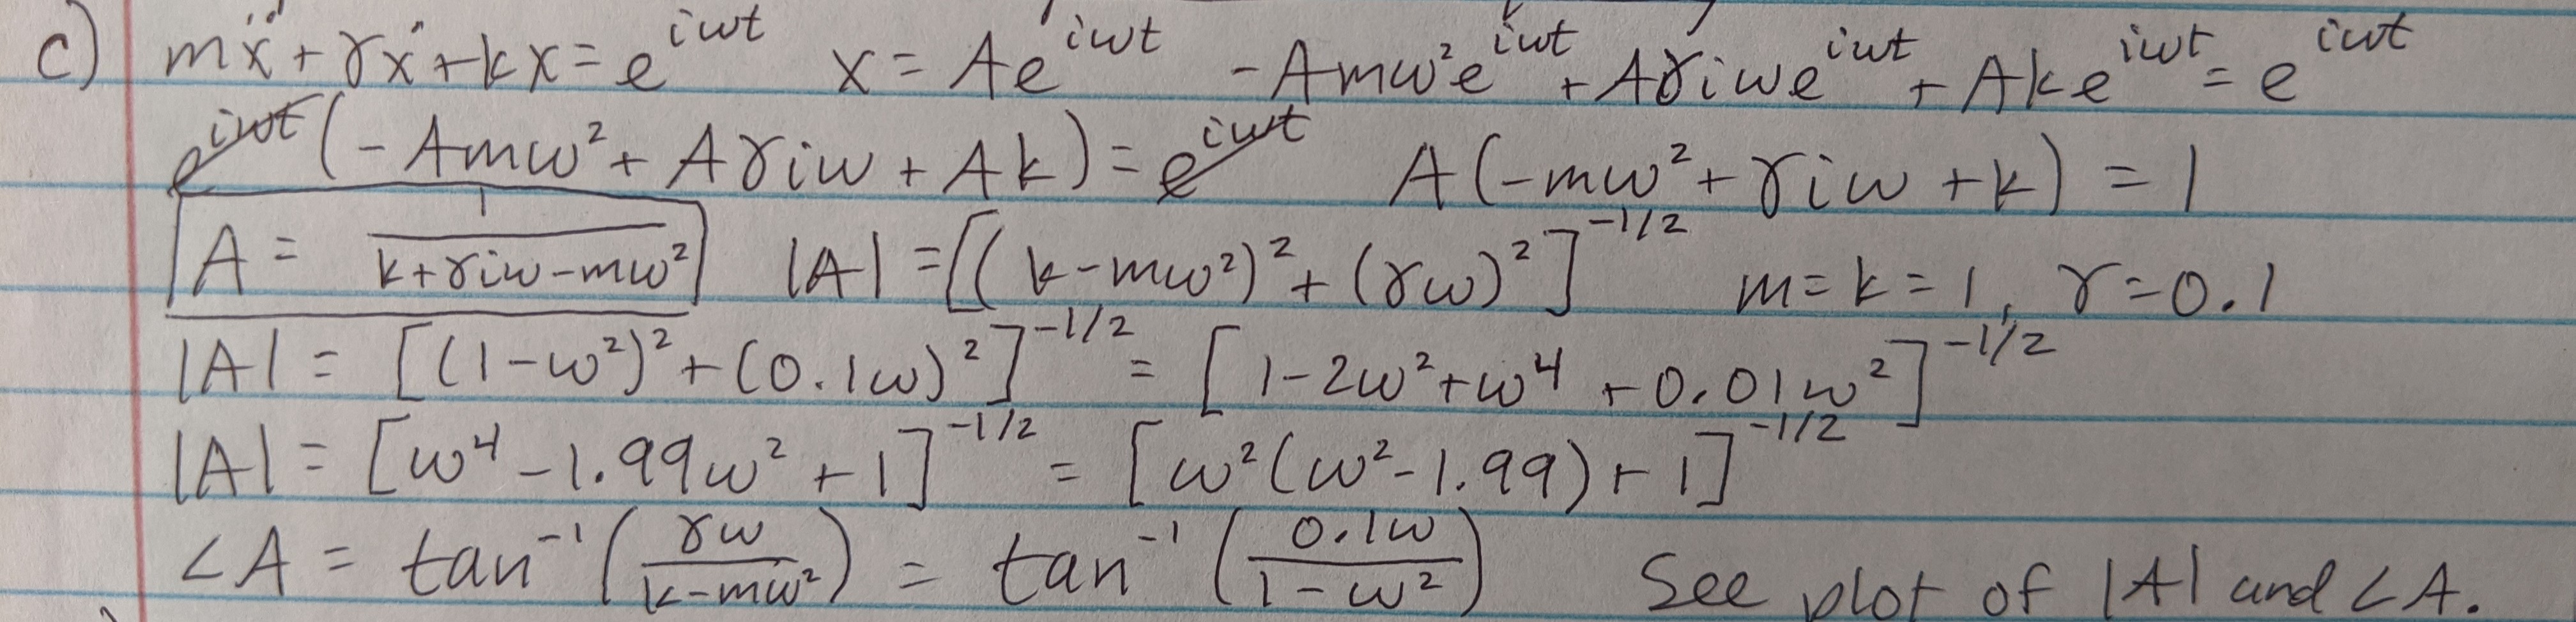 c) mẍ + γẋ + kx = e^{iωt}   x = Ae^{iωt}   -Amω²e^{iωt} + Aγiωe^{iωt} + Ake^{iωt} = e^{iωt}
e^{iωt}(-Amω² + Aγiω + Ak) = e^{iωt}   A(-mω² + γiω + k) = 1
A = 1/(k+γiω-mω²)   |A| = [(k-mω²)² + (γω)²]^{-1/2}   m = k = 1, γ = 0.1
|A| = [(1-ω²)² + (0.1ω)²]^{-1/2} = [1-2ω²+ω⁴+0.01ω²]^{-1/2}
|A| = [ω⁴-1.99ω²+1]^{-1/2} = [ω²(ω²-1.99)+1]^{-1/2}
∠A = tan⁻¹(γω/(k-mω²)) = tan⁻¹(0.1ω/(1-ω²))   See plot of |A| and ∠A.